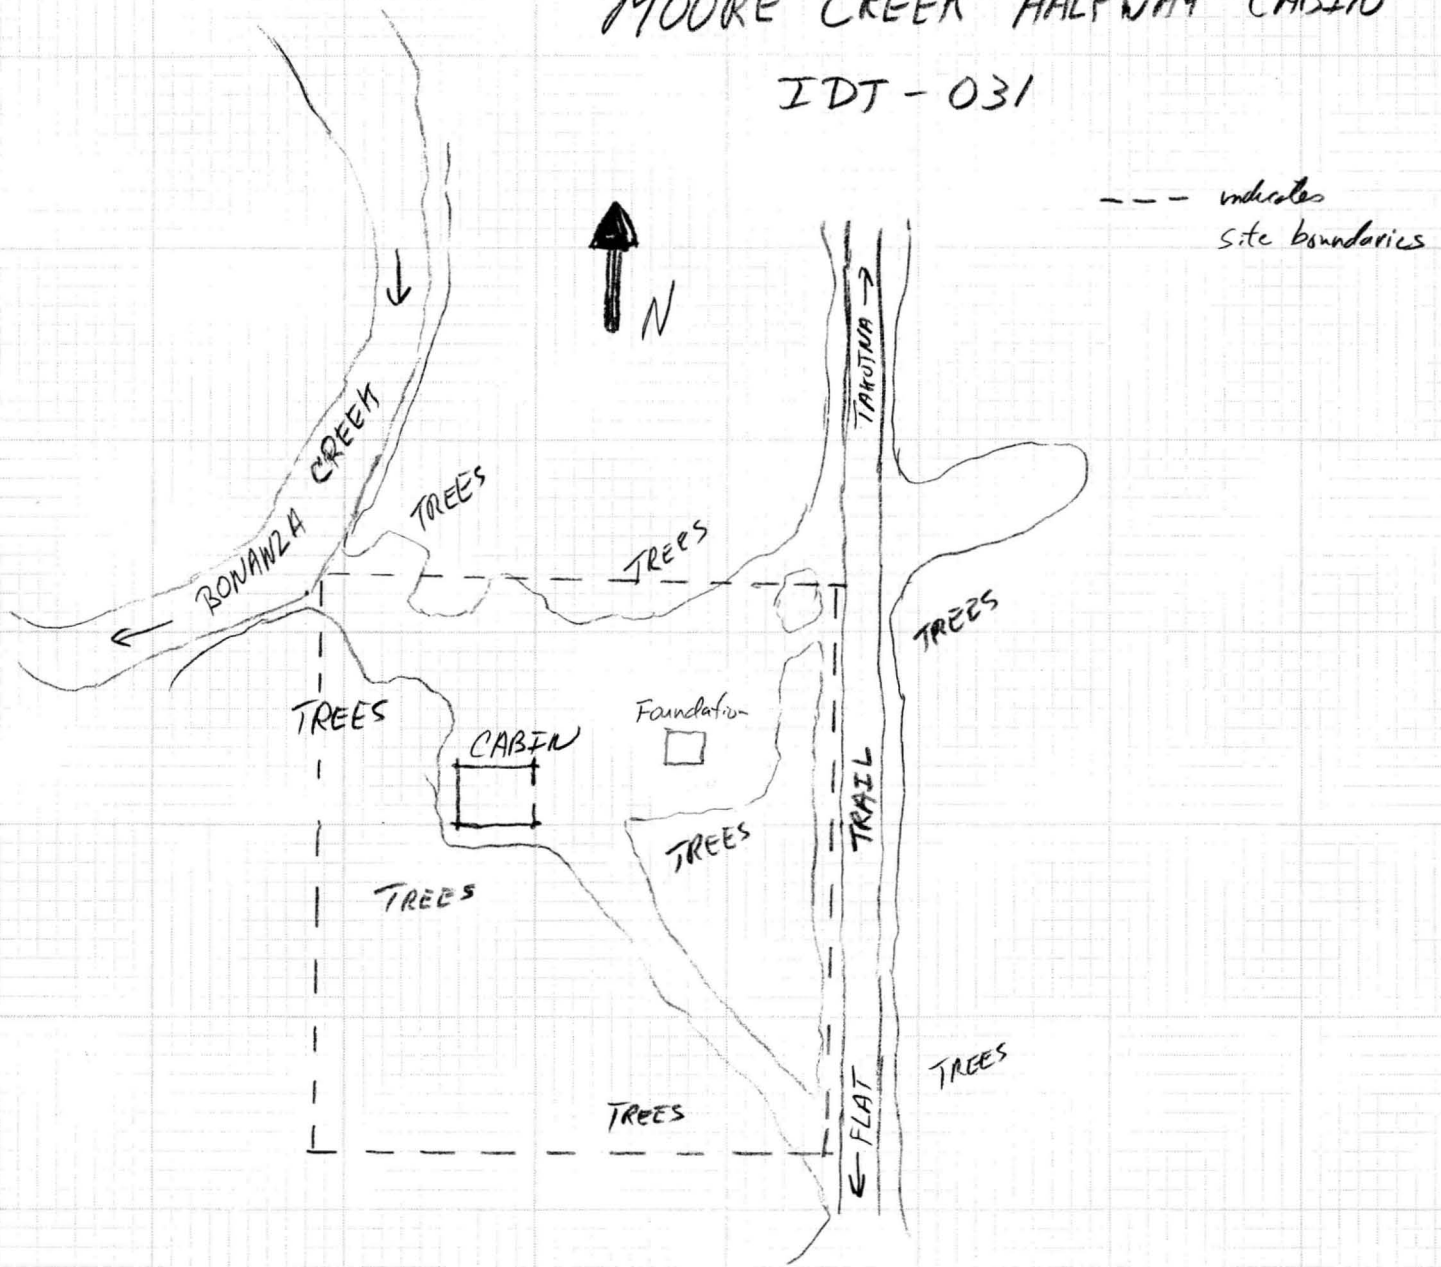 MOORE CREEK HALFWAY CABIN
IDT - 031
--- indicates
site boundaries
N
TAKOTNA →
BONANZA CREEK
TREES
TREES
TREES
TREES
Foundation
CABIN
TRAIL
TREES
TREES
TREES
TREES
← FLAT